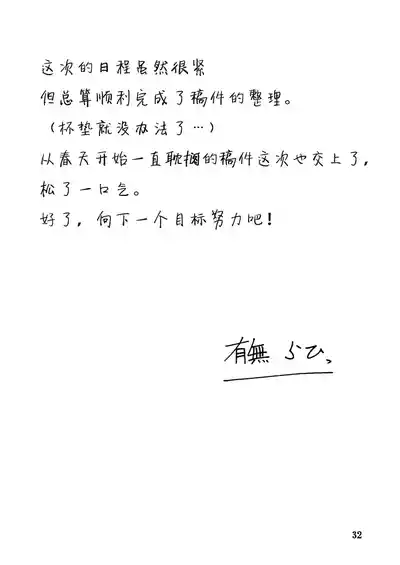 这次的日程虽然很紧
但总算顺利完成了稿件的整理。
（杯垫就没办法了…）
从春天开始一直耽搁的稿件这次也交上了，
松了一口气。
好了，向下一个目标努力吧！
有無 らひ
32